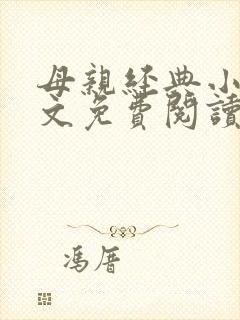 母親經典小
文免費閱讀
馮厝